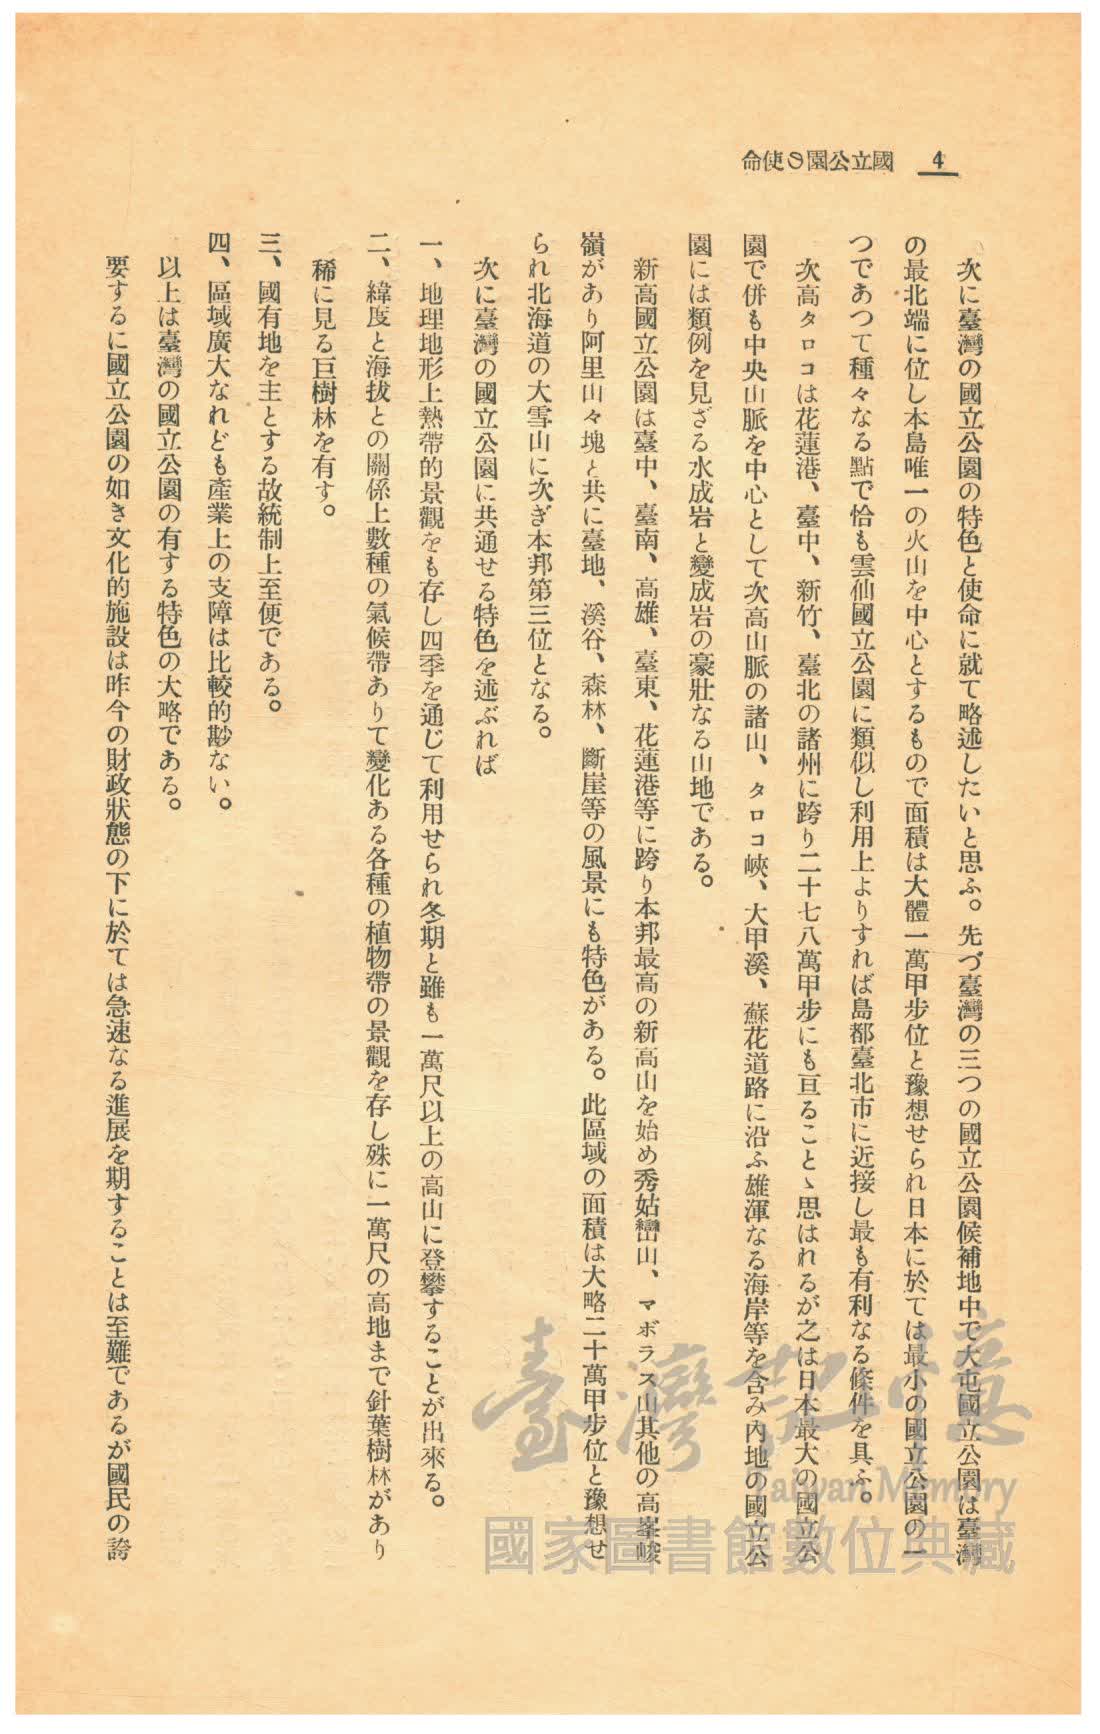 4 國立公園の使命
次に臺灣の國立公園の特色と使命に就て略述したいと思ふ。先づ臺灣の三つの國立公園候補地中で大屯國立公園は臺灣
の最北端に位し本島唯一の火山を中心とするもので面積は大體一萬甲步位と豫想せられ日本に於ては最小の國立公園の一
つであつて種々なる點で恰も雲仙國立公園に類似し利用上よりすれば島都臺北市に近接し最も有利なる條件を具ふ。
次高タロコは花蓮港、臺中、新竹、臺北の諸州に跨り二十七八萬甲步にも亘ることゝ思はれるが之は日本最大の國立公
園で併も中央山脈を中心として次高山脈の諸山、タロコ峽、大甲溪、蘇花道路に沿ふ雄渾なる海岸等を含み內地の國立公
園には類例を見ざる水成岩と變成岩の豪壯なる山地である。
新高國立公園は臺中、臺南、高雄、臺東、花蓮港等に跨り本邦最高の新高山を始め秀姑巒山、マボラス山其他の高峯峻
嶺があり阿里山々塊と共に臺地、溪谷、森林、斷崖等の風景にも特色がある。此區域の面積は大略二十萬甲步位と豫想せ
られ北海道の大雪山に次ぎ本邦第三位となる。
次に臺灣の國立公園に共通せる特色を述ぶれば
一、地理地形上熱帶的景觀をも存し四季を通じて利用せられ冬期と雖も一萬尺以上の高山に登攀することが出來る。
二、緯度と海拔との關係上數種の氣候帶ありて變化ある各種の植物帶の景觀を存し殊に一萬尺の高地まで針葉樹林があり
稀に見る巨樹林を有す。
三、國有地を主とする故統制上至便である。
四、區域廣大なれども產業上の支障は比較的尠ない。
以上は臺灣の國立公園の有する特色の大略である。
要するに國立公園の如き文化的施設は昨今の財政狀態の下に於ては急速なる進展を期することは至難であるが國民の誇
臺灣記憶
Taiwan Memory
國家圖書館數位典藏